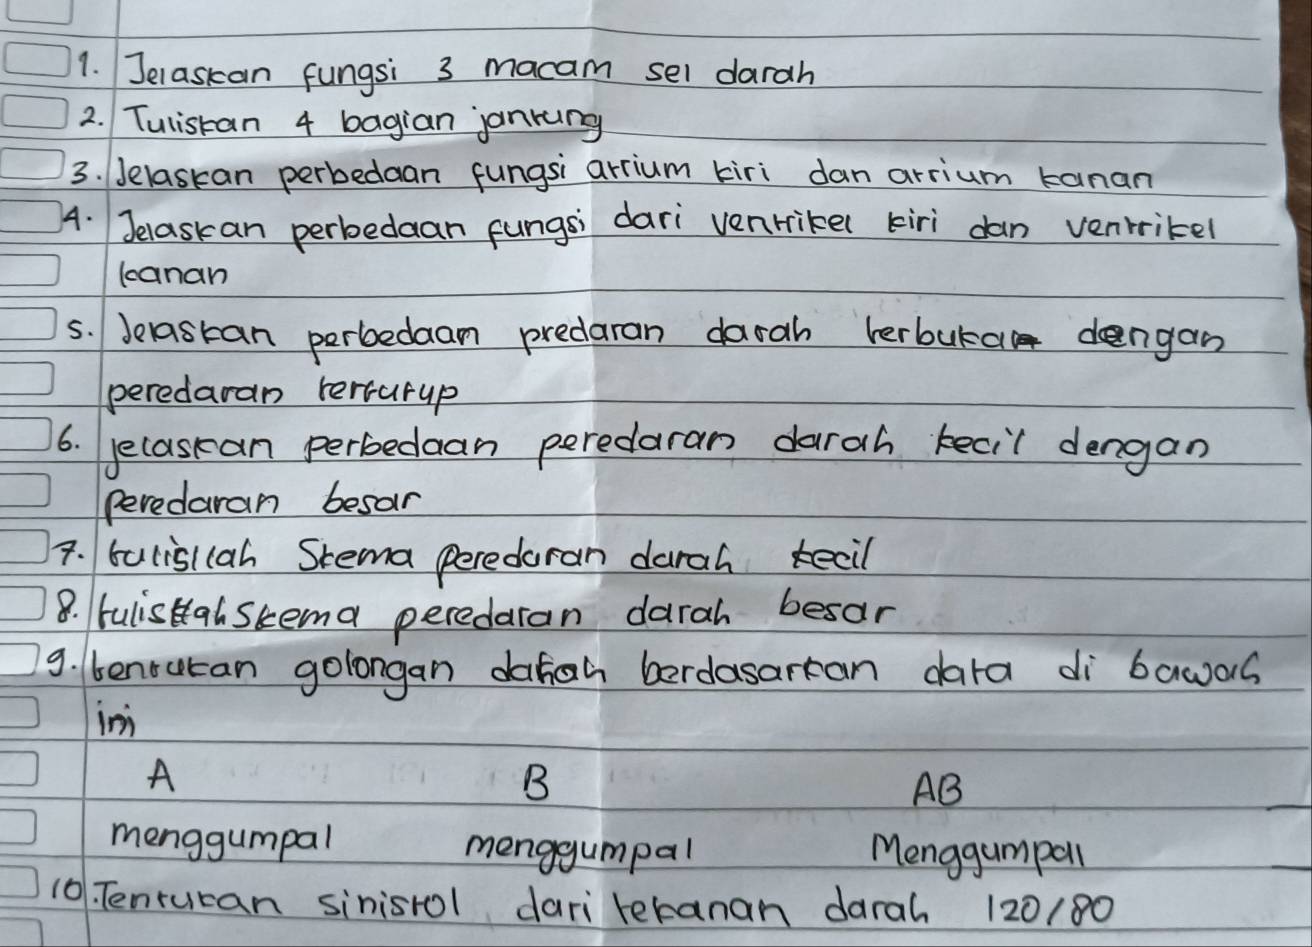 1. Jelaskan fungsi 3 macam sel darah
2. Tuliskan 4 bagian jantung
3. Jelaskan perbedaan fungsi atrium kiri dan atrium kanan
4. Jelaskan perbedaan fungsi dari ventrikel kiri dan ventrikel
kanan
5. Jelaskan perbedaan predaran darah terbuka dengan
peredaran tertutup
6. jelaskan perbedaan peredaran darah kecil dengan
peredaran besar
7. tulislah Skema peredaran darah kecil
8. tulislah Skema peredaran darah besar
9. tentukan golongan darah berdasarkan data di bawah
ini
A B AB
menggumpal menggumpal Menggumpal
10. Tentukan sinistol dari tekanan darah 120/80